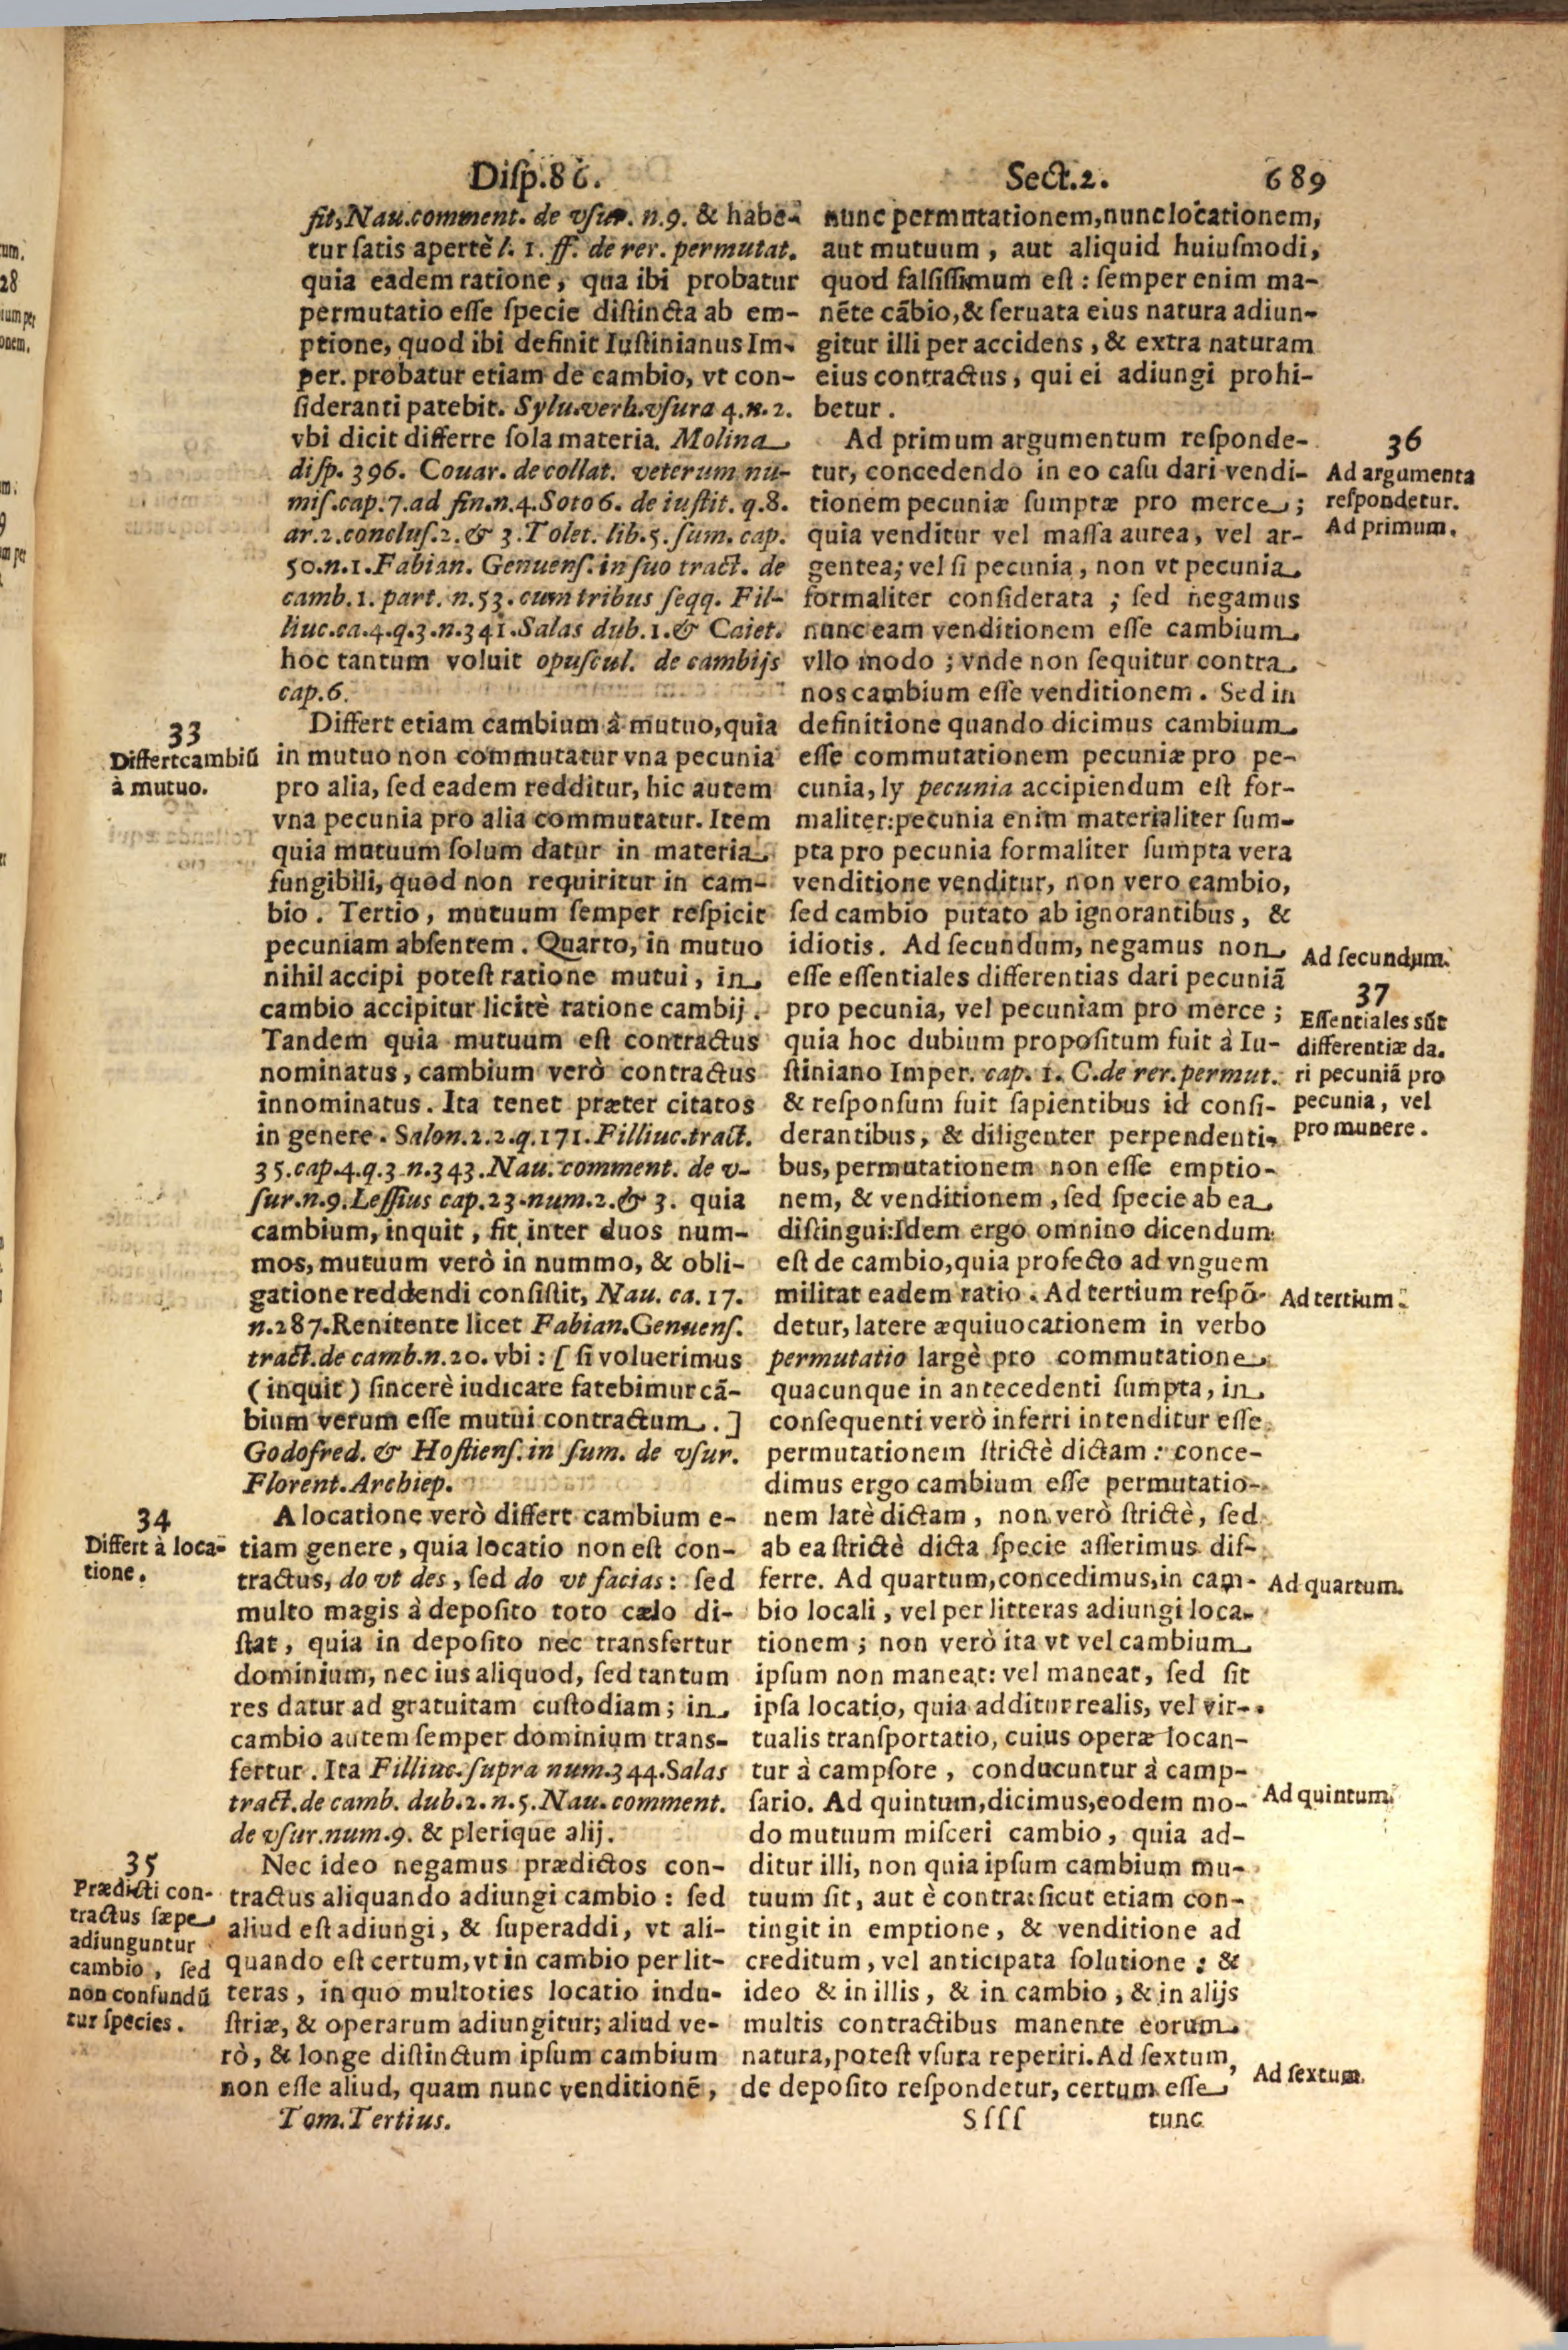 Diſp.86. Sect.2. 689
fit, Nau.comment. de vſur. n.9. & habe-
tur ſatis apertè l. 1. ff. de rer. permutat.
quia eadem ratione, qua ibi probatur
permutatio eſſe ſpecie diſtincta ab em-
ptione, quod ibi definit Iuſtinianus Im-
per. probatur etiam de cambio, vt con-
ſideranti patebit. Sylu.verb.vſura 4.n.2.
vbi dicit differre ſola materia. Molina
diſp. 396. Couar. de collat. veterum nu-
miſ.cap.7.ad fin.n.4.Soto 6. de iuſtit. q.8.
ar.2.concluſ.2.& 3.Tolet. lib.5.ſum. cap.
50.n.1.Fabian. Genuenſ. in ſuo tract. de
camb.1. part. n.53. cum tribus ſeqq. Fil-
liuc.ca.4.q.3.n.341.Salas dub.1.& Caiet.
hoc tantum voluit opuſcul. de cambijs
cap.6.
33
Differt cambiū
à mutuo.
Differt etiam cambium à mutuo, quia
in mutuo non commutatur vna pecunia
pro alia, ſed eadem redditur, hic autem
vna pecunia pro alia commutatur. Item
quia mutuum ſolum datur in materia
fungibili, quod non requiritur in cam-
bio. Tertio, mutuum ſemper reſpicit
pecuniam abſentem. Quarto, in mutuo
nihil accipi poteſt ratione mutui, in
cambio accipitur licitè ratione cambij.
Tandem quia mutuum eſt contractus
nominatus, cambium verò contractus
innominatus. Ita tenet præter citatos
in genere. Salon.2.2.q.171.Filliuc.tract.
35.cap.4.q.3 n.343.Nau. comment. de v-
ſur.n.9.Leſſius cap.23.num.2.& 3. quia
cambium, inquit, fit inter duos num-
mos, mutuum verò in nummo, & obli-
gatione reddendi conſiſtit, Nau. ca. 17.
n.287.Renitente licet Fabian.Genuenſ.
tract.de camb.n.20. vbi: [ ſi voluerimus
(inquit) ſincerè iudicare fatebimur cā-
bium verum eſſe mutui contractum.]
Godofred. & Hoſtienſ. in ſum. de vſur.
Florent.Archiep.
34
Differt à loca-
tione.
A locatione verò differt cambium e-
tiam genere, quia locatio non eſt con-
tractus, do vt des, ſed do vt facias: ſed
multo magis à depoſito toto cælo di-
ſtat, quia in depoſito nec transfertur
dominium, nec ius aliquod, ſed tantum
res datur ad gratuitam cuſtodiam; in
cambio autem ſemper dominium trans-
fertur. Ita Filliuc.ſupra num.344.Salas
tract.de camb. dub.2.n.5.Nau.comment.
de vſur.num.9. & plerique alij.
35
Prædicti con-
tractus ſæpe
adiunguntur
cambio, ſed
non confundū
tur ſpecies.
Nec ideo negamus prædictos con-
tractus aliquando adiungi cambio: ſed
aliud eſt adiungi, & ſuperaddi, vt ali-
quando eſt certum, vt in cambio per lit-
teras, in quo multoties locatio indu-
ſtriæ, & operarum adiungitur; aliud ve-
rò, & longe diſtinctum ipſum cambium
non eſſe aliud, quam nunc venditionē,
Tom.Tertius.
nunc permutationem, nunc locationem,
aut mutuum, aut aliquid huiuſmodi,
quod falſiſſimum eſt: ſemper enim ma-
nēte cābio, & ſeruata eius natura adiun-
gitur illi per accidens, & extra naturam
eius contractus, qui ei adiungi prohi-
betur.
36
Ad argumenta
reſpondetur.
Ad primum.
Ad primum argumentum reſponde-
tur, concedendo in eo caſu dari vendi-
tionem pecuniæ ſumptæ pro merce;
quia venditur vel maſſa aurea, vel ar-
gentea; vel ſi pecunia, non vt pecunia
formaliter conſiderata; ſed negamus
nunc eam venditionem eſſe cambium
vllo modo; vnde non ſequitur contra
nos cambium eſſe venditionem. Sed in
definitione quando dicimus cambium
eſſe commutationem pecuniæ pro pe-
cunia, ly pecunia accipiendum eſt for-
maliter: pecunia enim materialiter ſum-
pta pro pecunia formaliter ſumpta vera
venditione venditur, non vero cambio,
ſed cambio putato ab ignorantibus, &
idiotis. Ad ſecundum, negamus non
Ad ſecundum.
eſſe eſſentiales differentias dari pecuniā
pro pecunia, vel pecuniam pro merce;
37
Eſſentiales sūt
differentiæ da.
ri pecuniā pro
pecunia, vel
pro munere.
quia hoc dubium propoſitum fuit à Iu-
ſtiniano Imper. cap. 1. C.de rer.permut.
& reſponſum fuit ſapientibus id conſi-
derantibus, & diligenter perpendenti-
bus, permutationem non eſſe emptio-
nem, & venditionem, ſed ſpecie ab ea
diſtingui: Idem ergo omnino dicendum
eſt de cambio, quia profecto ad vnguem
militat eadem ratio. Ad tertium reſpō-
Ad tertium.
detur, latere æquiuocationem in verbo
permutatio largè pro commutatione
quacunque in antecedenti ſumpta, in
conſequenti verò inferri intenditur eſſe
permutationem ſtrictè dictam: conce-
dimus ergo cambium eſſe permutatio-
nem latè dictam, non verò ſtrictè, ſed
ab ea ſtrictè dicta ſpecie aſſerimus dif-
ferre. Ad quartum, concedimus, in cam-
Ad quartum.
bio locali, vel per litteras adiungi loca-
tionem; non verò ita vt vel cambium
ipſum non maneat: vel maneat, ſed ſit
ipſa locatio, quia additur realis, vel vir-
tualis tranſportatio, cuius operæ locan-
tur à campſore, conducuntur à camp-
ſario. Ad quintum, dicimus, eodem mo-
Ad quintum.
do mutuum miſceri cambio, quia ad-
ditur illi, non quia ipſum cambium mu-
tuum ſit, aut è contra: ſicut etiam con-
tingit in emptione, & venditione ad
creditum, vel anticipata ſolutione: &
ideo & in illis, & in cambio, & in alijs
multis contractibus manente eorum
natura, poteſt vſura reperiri. Ad ſextum,
Ad ſextum.
de depoſito reſpondetur, certum eſſe
Sſſſ tunc